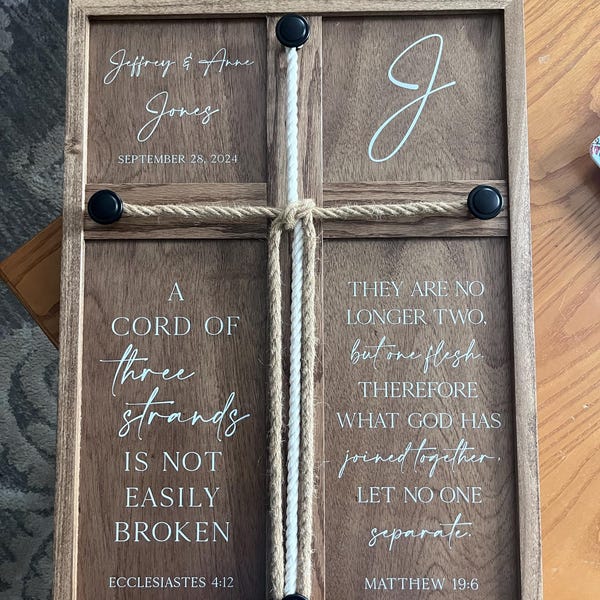 Jeffrey & Anne
Jones
SEPTEMBER 28, 2024
J
A
CORD OF
three
strands
IS NOT
EASILY
BROKEN
ECCLESIASTES 4:12
THEY ARE NO
LONGER TWO,
but one flesh.
THEREFORE
WHAT GOD HAS
joined together,
LET NO ONE
separate.
MATTHEW 19:6